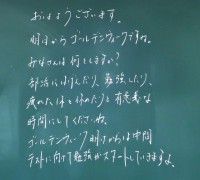 おはようございます。
明日からゴールデンウィークですね。
みなさんは何しますか?
部活にはげんだり、勉強したり、
疲れた体を休めたりと有意義な
時間にしてくださいね。
ゴールデンウィーク明けからは中間
テストに向けて勉強がスタートしていきますよ。